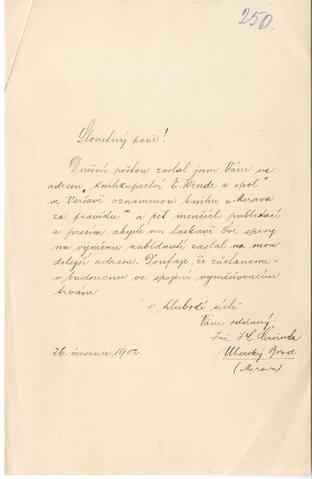 250.
Slovutný pane!
Dnešní poštou zaslal jsem Vám na
adresu "knihkupectví E. Wende a spol"
ve Varšavě oznámenou knihu "Morava
za pravěku" a pět menších publikací
a prosím, abyste mi laskavě Své spisy
na výměnu nabídnuté zaslal na mou
dolejší adresu. Doufaje, že zůstaneme
v budoucnu ve spojení vyměňovacím
trvám
v hluboké úctě
Vám oddaný
I. L. Červinka
Uherský Brod
(Morava)
26. července 1902